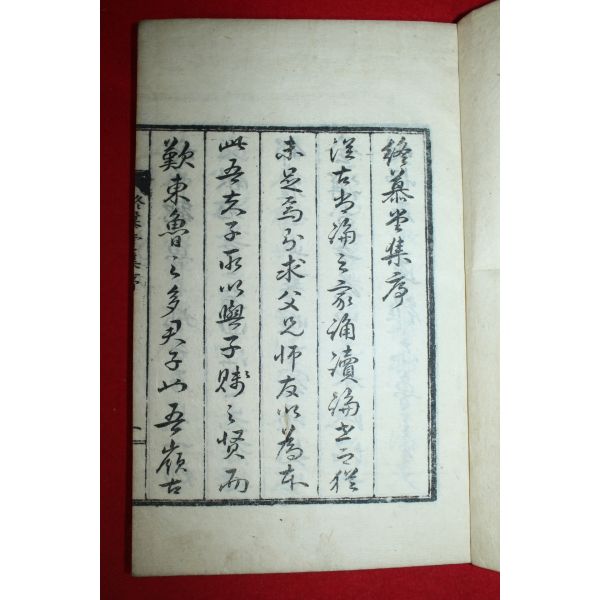 終慕堂集序
從古尚論之家誦讀論世之猶
未足焉則求父兄師友以為本
此吾夫子所以與子賤之賢而
歎東魯之多君子也吾嶺古
終慕堂集序